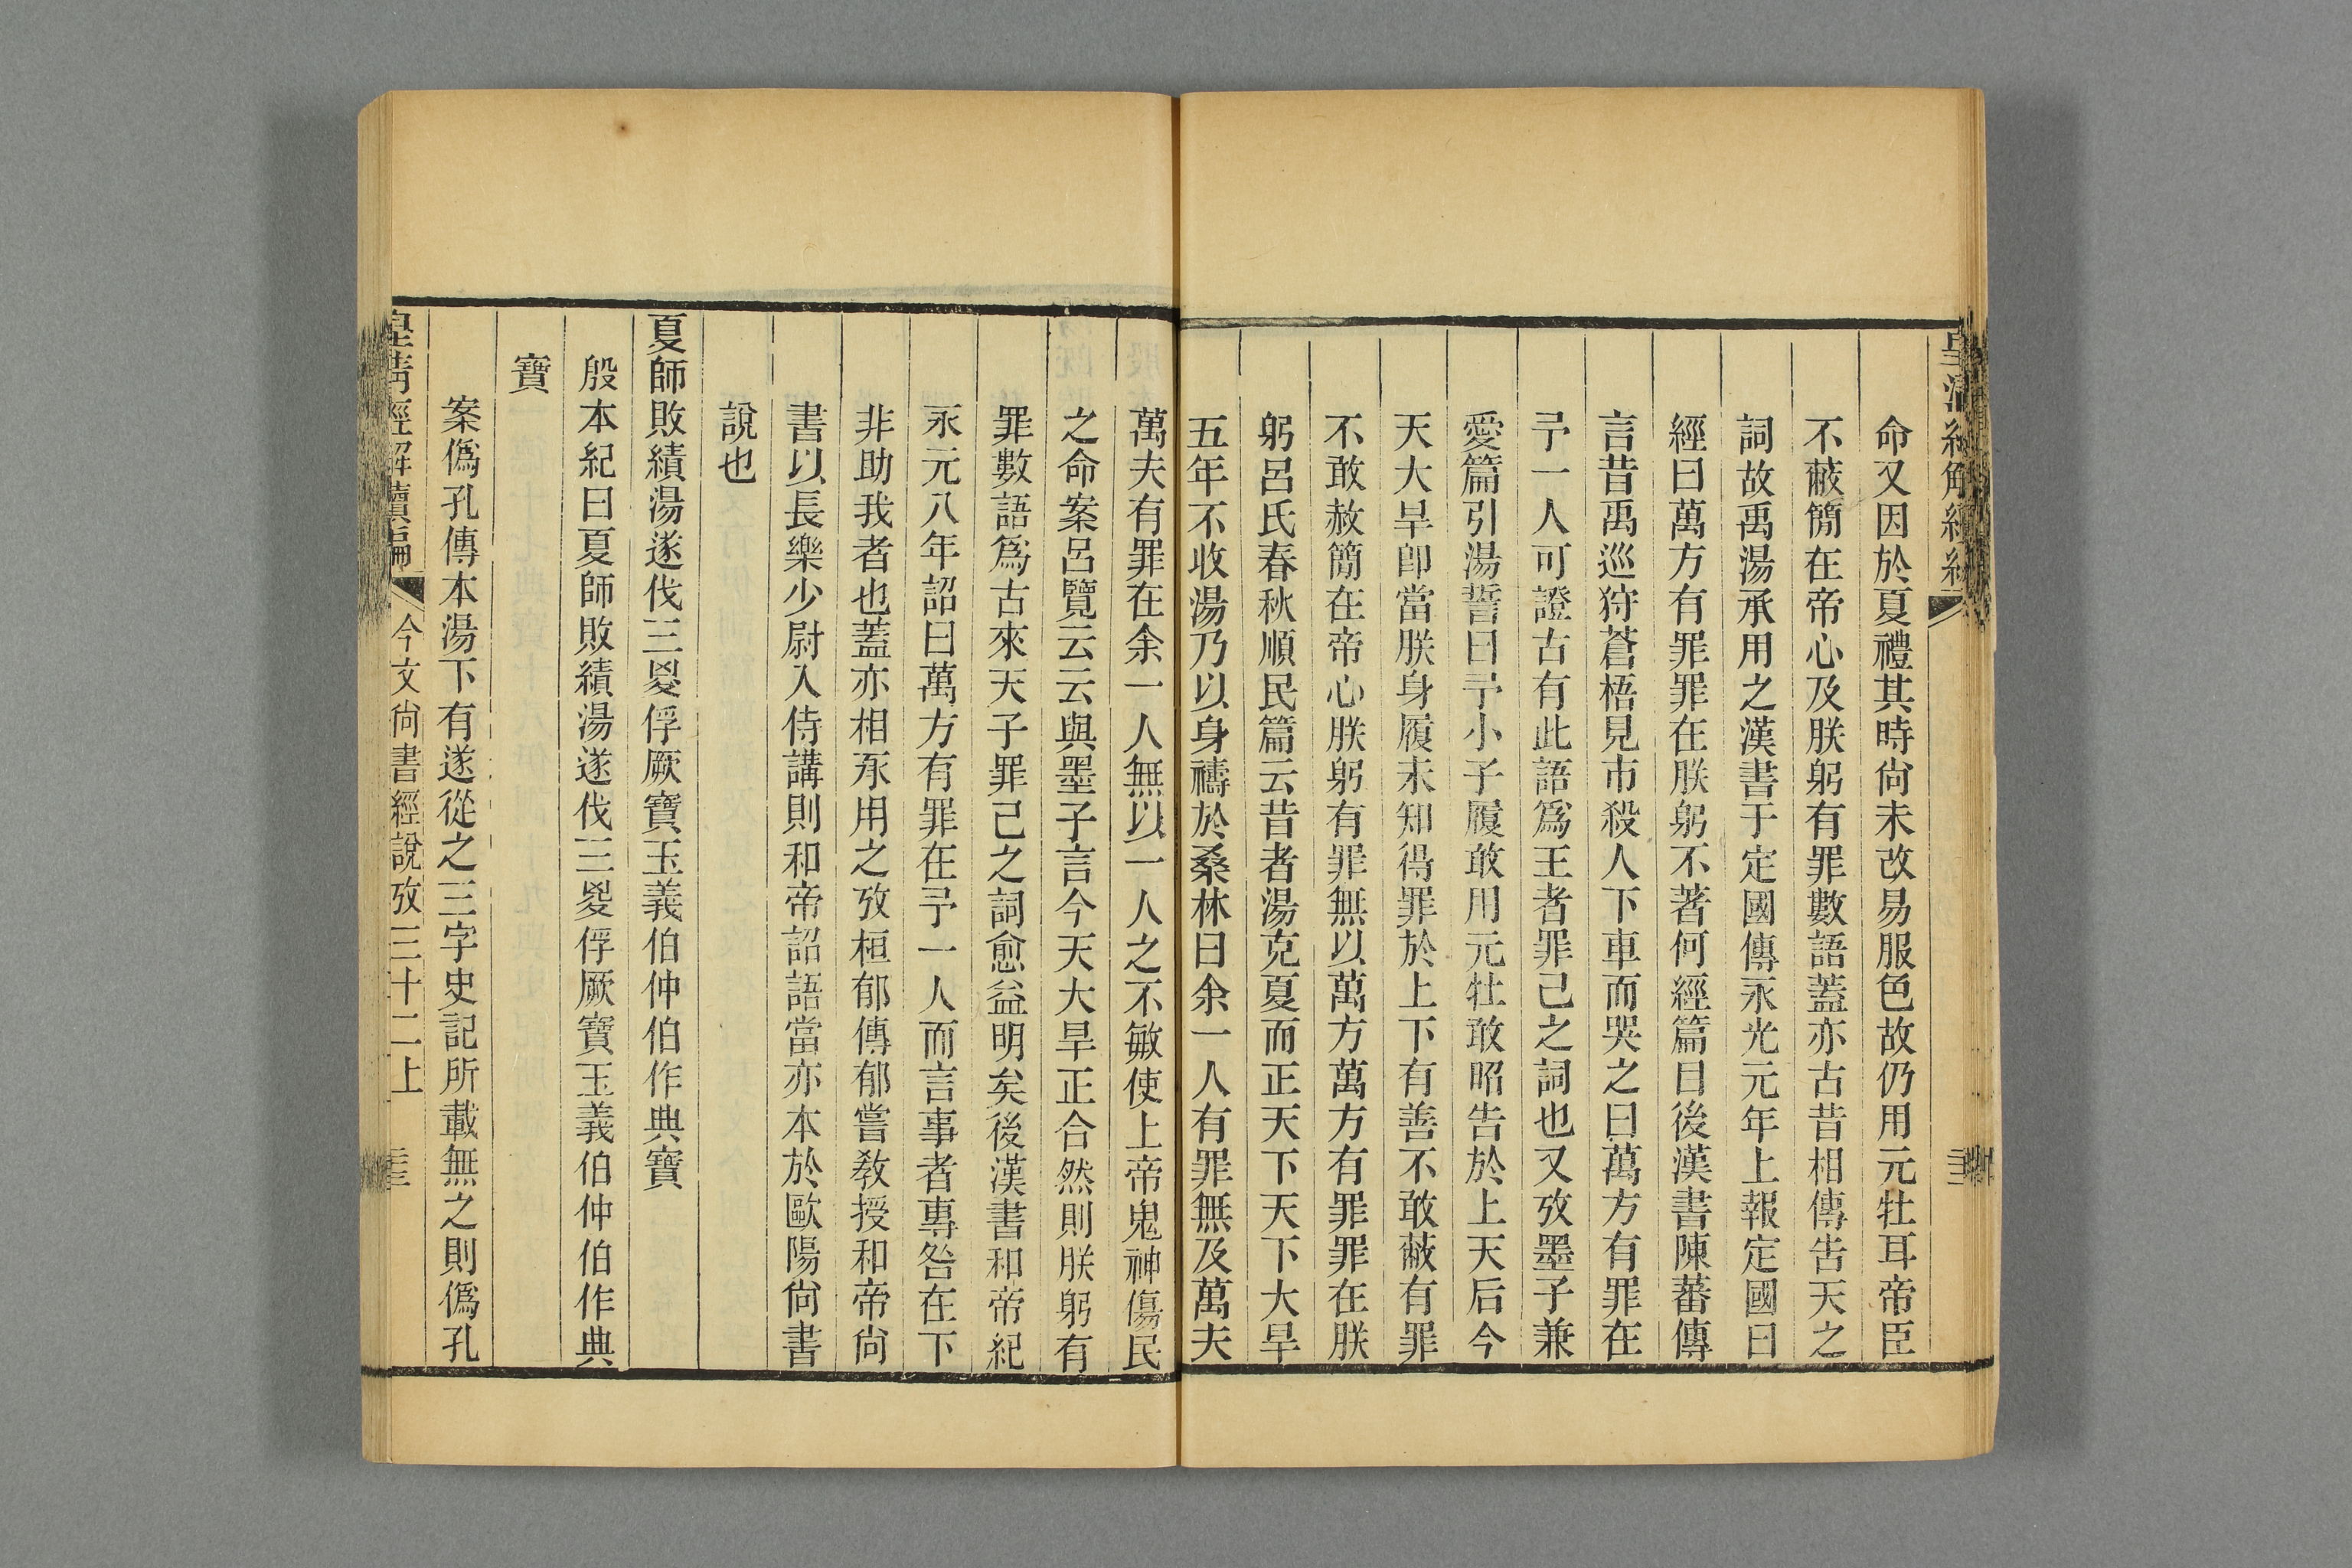 皇清經解續編
命又因於夏禮其時尙未改易服色故仍用元牡耳帝臣
不蔽簡在帝心及朕躬有罪數語蓋亦古昔相傳告天之
詞故禹湯承用之漢書于定國傳永光元年上報定國曰
經曰萬方有罪罪在朕躬不著何經篇目後漢書陳蕃傳
言昔禹巡狩蒼梧見市殺人下車而哭之曰萬方有罪在
予一人可證古有此語爲王者罪己之詞也又攷墨子兼
愛篇引湯誓曰予小子履敢用元牡敢昭告於上天后今
天大旱卽當朕身履未知得罪於上下有善不敢蔽有罪
不敢赦簡在帝心朕躬有罪無以萬方萬方有罪罪在朕
躬呂氏春秋順民篇云昔者湯克夏而正天下天下大旱
五年不收湯乃以身禱於桑林曰余一人有罪無及萬夫
萬夫有罪在余一人無以一人之不敏使上帝鬼神傷民
之命案呂覽云云與墨子言今天大旱正合然則朕躬有
罪數語爲古來天子罪己之詞愈益明矣後漢書和帝紀
永元八年詔曰萬方有罪在予一人而言事者專咎在下
非助我者也蓋亦相承用之攷桓郁傳郁嘗敎授和帝尙
書以長樂少尉入侍講則和帝詔語當亦本於歐陽尙書
說也
夏師敗績湯遂伐三㚇俘厥寶玉義伯仲伯作典寶
殷本紀曰夏師敗績湯遂伐三㚇俘厥寶玉義伯仲伯作典
寶
案僞孔傳本湯下有遂從之三字史記所載無之則僞孔
皇淸經解續編 今文尙書經說攷三十二上